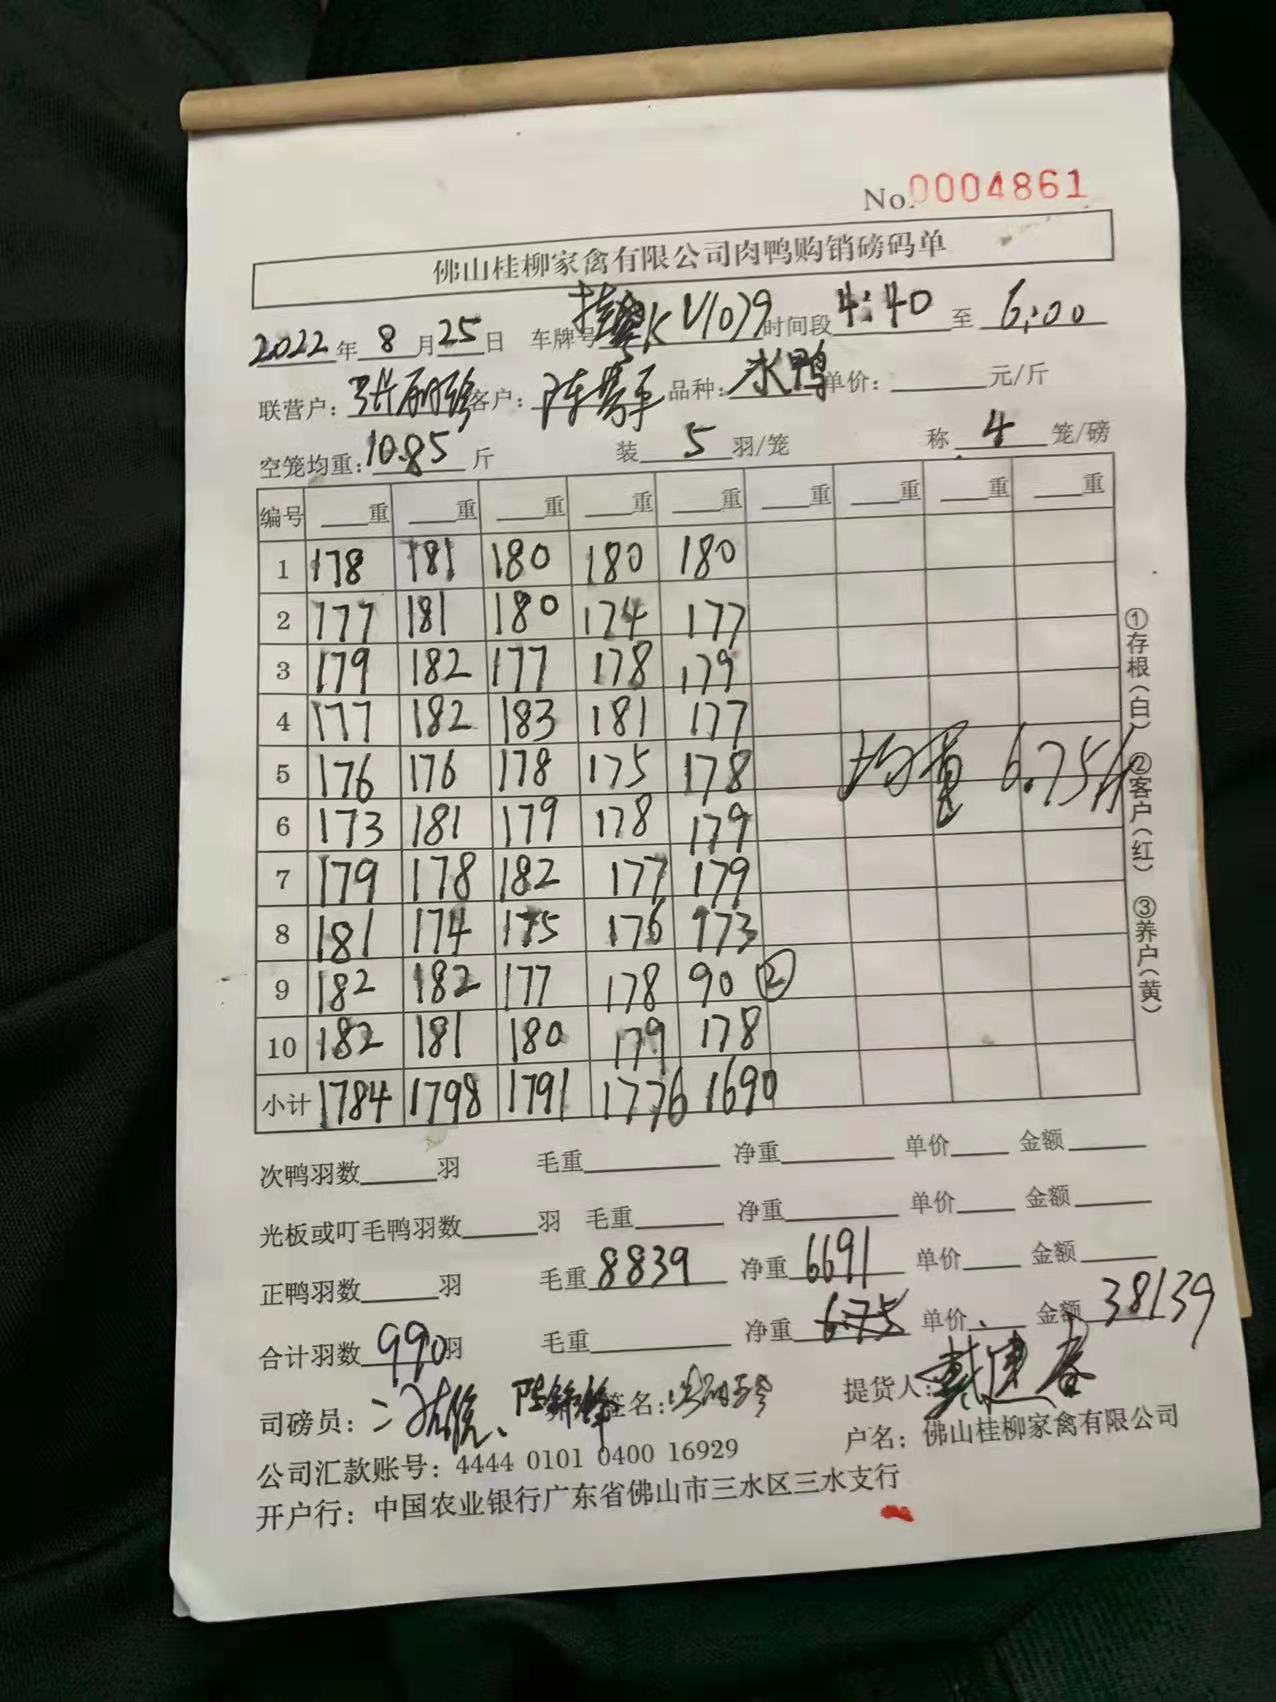 No.0004861
佛山桂柳家禽有限公司肉鸭购销磅码单
2022年8月25日 车牌号 桂K V1079 时间段 4:40 至 6:00
联营户: 客户: 陈 品种: 水鸭 单价: 元/斤
空笼均重: 10.85 斤 装 5 羽/笼 称 4 笼/磅
编号 重 重 重 重 重 重 重 重 重
1 178 181 180 180 180
2 177 181 180 174 177
3 179 182 177 178 179
4 177 182 183 181 177
5 176 176 178 175 178 均重 6.75斤
6 173 181 179 178 179
7 179 178 182 177 179
8 181 174 175 176 173
9 182 182 177 178 90 ②
10 182 181 180 179 178
小计 1784 1798 1791 1776 1690
①存根(白) ②客户(红) ③养户(黄)
次鸭羽数 羽 毛重 净重 单价 金额
光板或叮毛鸭羽数 羽 毛重 净重 单价 金额
正鸭羽数 羽 毛重 8839 净重 6691 单价 金额
合计羽数 990 羽 毛重 净重 6.75 单价 金额 38139
司磅员: 签名: 提货人: 戴建春
公司汇款账号: 4444 0101 0400 16929 户名: 佛山桂柳家禽有限公司
开户行: 中国农业银行广东省佛山市三水区三水支行